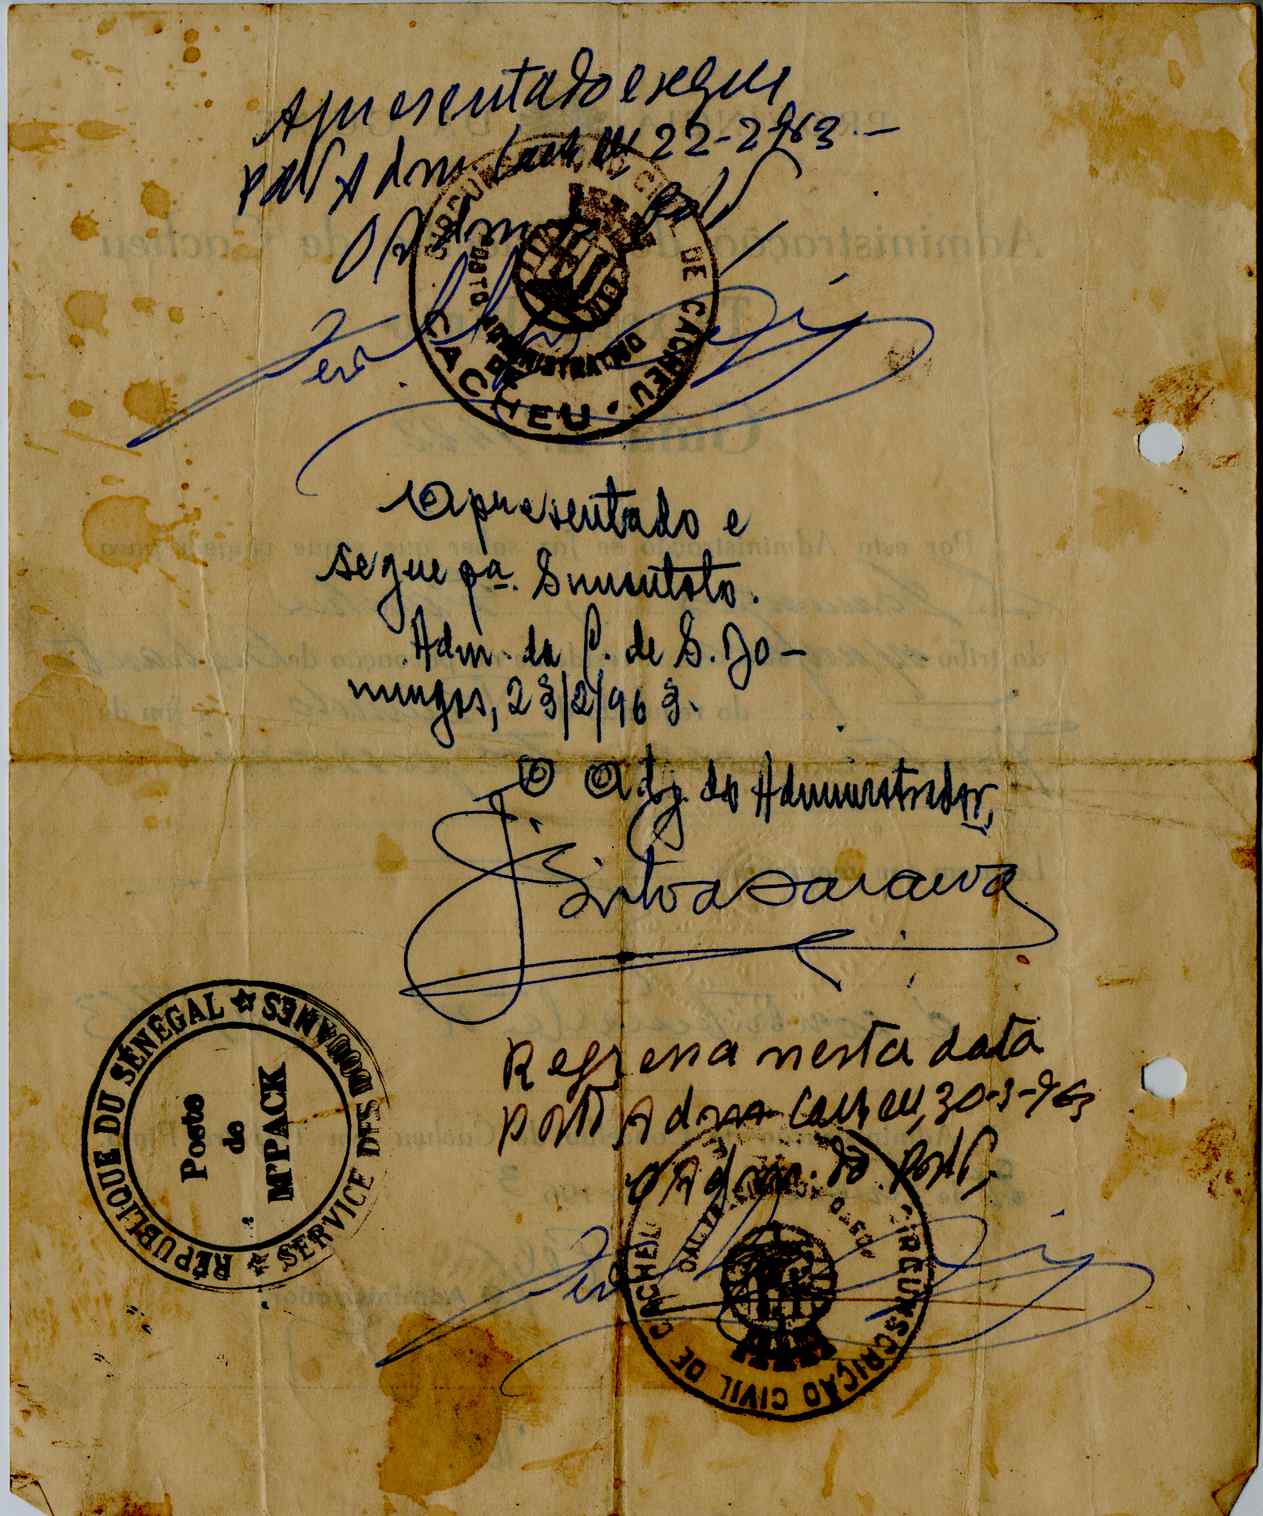 Apresentado e segue
Post Adm. Cacheu 22-2-963.-
O Adm. do Post
CIRCUNSCRIÇÃO CIVIL DE CACHEU
POSTO ADMINISTRATIVO
DE
CACHEU
Apresentado e
segue pª. Smentoto.
Adm. da C. de S. Do-
mingos, 23/2/963.
O Adj. do Administrador,
Silva Saraiva
RÉPUBLIQUE DU SÉNÉGAL
SERVICE DES DOUANES
Poste
de
M'PACK
Regressa nesta data
Posto Adm. Cacheu, 30-3-963
O Adm. do Post,
CIRCUNSCRIÇÃO CIVIL DE CACHEU
POSTO